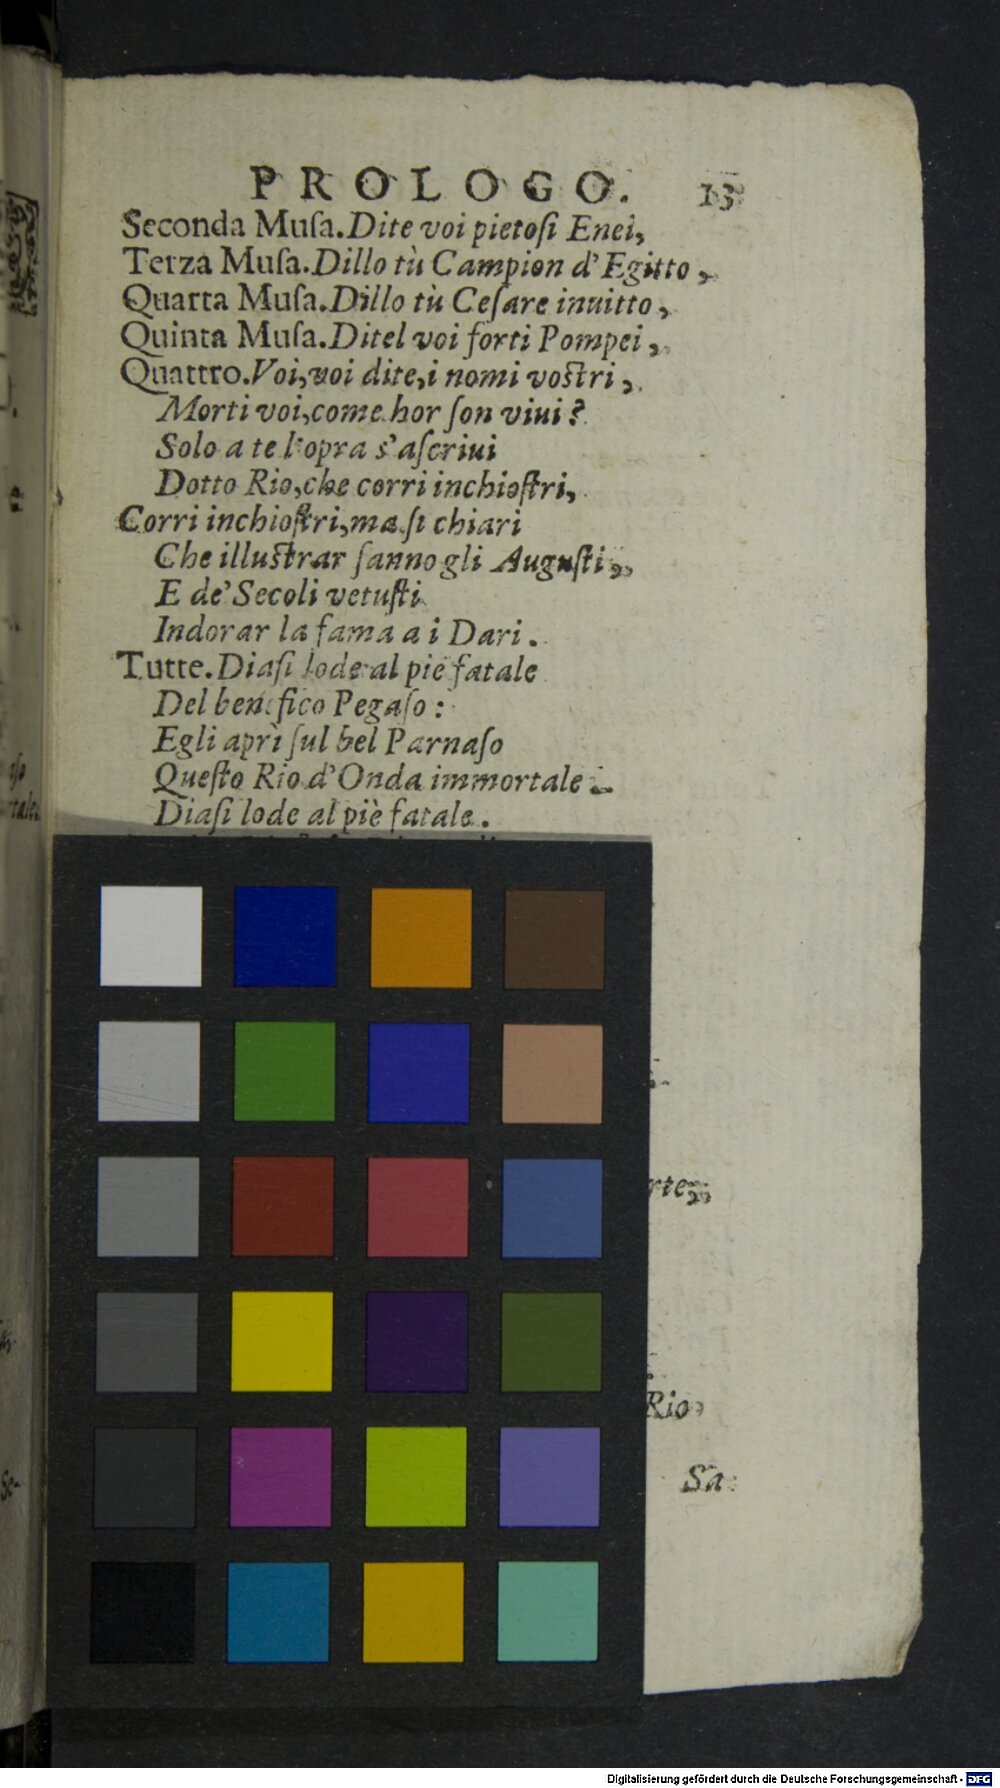 PROLOGO. 13
Seconda Muſa. Dite voi pietoſi Enei,
Terza Muſa. Dillo tù Campion d'Egitto,
Quarta Muſa. Dillo tù Ceſare inuitto,
Quinta Muſa. Ditel voi forti Pompei,
Quattro. Voi, voi dite, i nomi voſtri,
Morti voi, come hor ſon viui?
Solo a te l'opra s'aſcriui
Dotto Rio, che corri inchioſtri,
Corri inchioſtri, ma ſi chiari
Che illuſtrar ſanno gli Auguſti,
E de' Secoli vetuſti
Indorar la fama a i Dari.
Tutte. Diaſi lode al piè fatale
Del benefico Pegaſo:
Egli aprì ſul bel Parnaſo
Queſto Rio d'Onda immortale.
Diaſi lode al piè fatale.
rte,
Rio
Sa
Digitalisierung gefördert durch die Deutsche Forschungsgemeinschaft - DFG